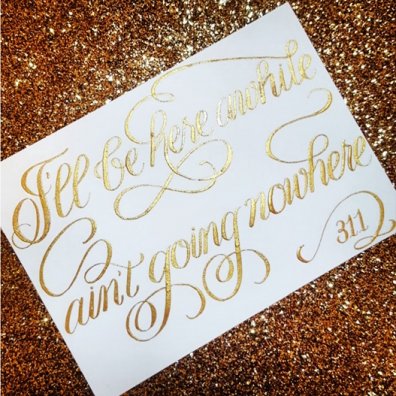 I'll be here awhile
ain't going nowhere
311